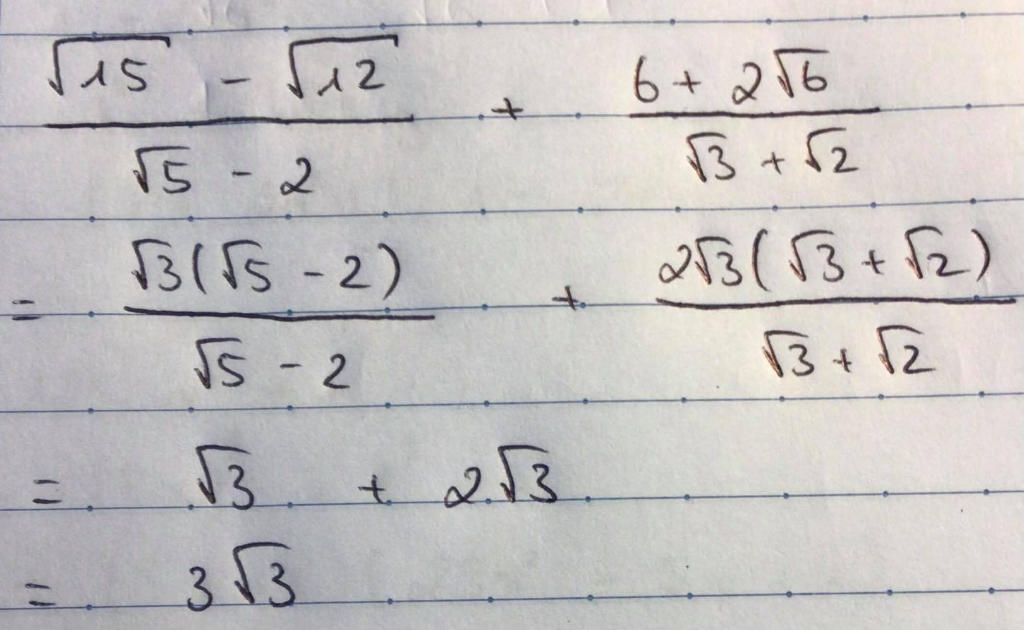 √15 - √12 / √5 - 2 + 6 + 2√6 / √3 + √2
= √3(√5 - 2) / √5 - 2 + 2√3(√3 + √2) / √3 + √2
= √3 + 2√3
= 3√3